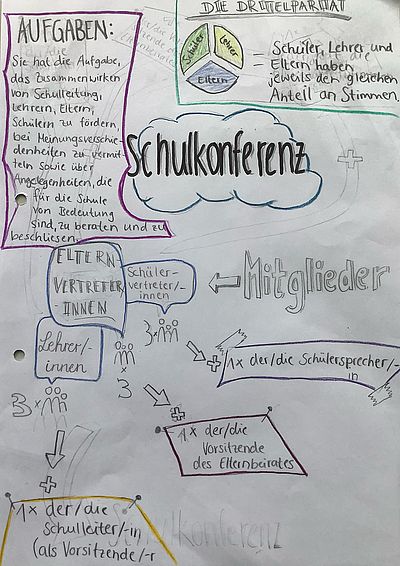 AUFGABEN:
Sie hat die Aufgabe,
das Zusammenwirken
von Schulleitung,
Lehrern, Eltern,
Schülern zu fördern,
bei Meinungsverschie-
denheiten zu vermit-
teln sowie über
Angelegenheiten, die
für die Schule
von Bedeutung
sind, zu beraten und zu
beschliesen.
DIE DRITTELPARITÄT
Schüler
Lehrer
Eltern
= Schüler, Lehrer und
Eltern haben
jeweils den gleichen
Anteil an Stimmen.
Schulkonferenz
Mitglieder
ELTERN
VERTRETER
-INNEN
Schüler-
vertreter/-
innen
Lehrer/-
innen
3x
3x
3
+ 1x der/die Schülersprecher/-
in
+
1x der/die
Vorsitzende
des Elternbeirates
+
1x der/die
Schulleiter/-in
(als Vorsitzende/-r